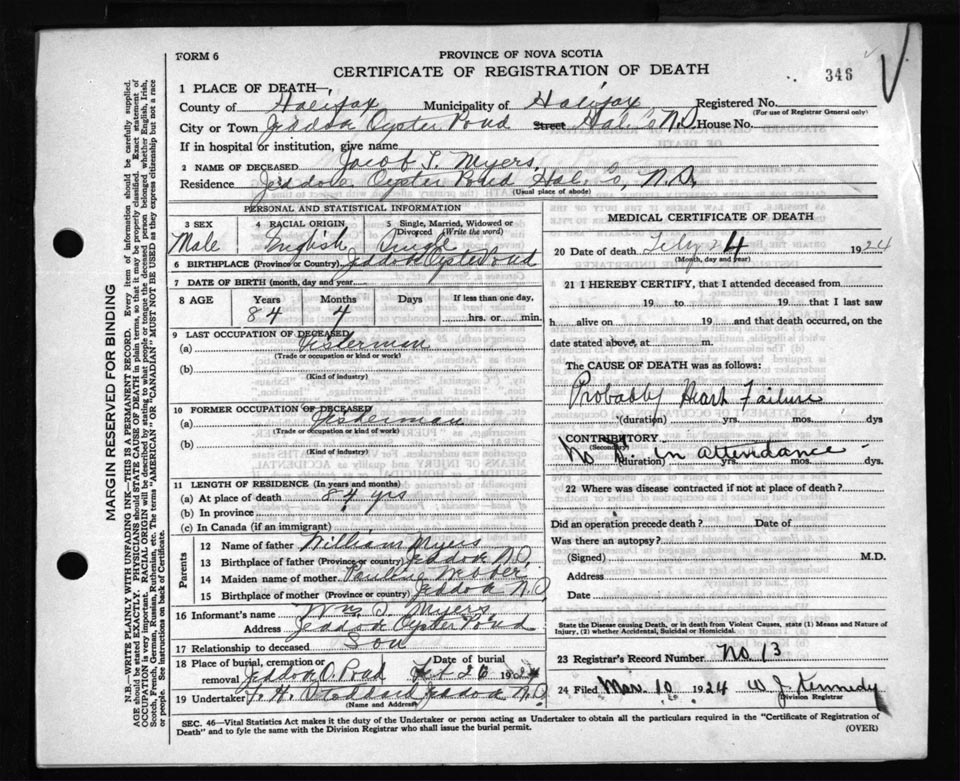 FORM 6
PROVINCE OF NOVA SCOTIA
CERTIFICATE OF REGISTRATION OF DEATH
346
1 PLACE OF DEATH—
County of Halifax Municipality of Halifax Registered No.
(For use of Registrar General only)
City or Town Jeddore Oyster Pond Street House No.
If in hospital or institution, give name
2 NAME OF DECEASED Jacob Myers
Residence Jeddore Oyster Pond Hal. Co, N.S.
(Usual place of abode)
PERSONAL AND STATISTICAL INFORMATION
3 SEX 4 RACIAL ORIGIN 5 Single, Married, Widowed or Divorced (Write the word)
Male English Single
6 BIRTHPLACE (Province or Country) Jeddore Oyster Pond
7 DATE OF BIRTH (month, day and year)
8 AGE Years Months Days If less than one day,
84 4 hrs. or min.
9 LAST OCCUPATION OF DECEASED
(a) Fisherman
(Trade or occupation or kind or work)
(b)
(Kind of industry)
10 FORMER OCCUPATION OF DECEASED
(a) Fisherman
(Trade or occupation or kind of work)
(b)
(Kind of industry)
11 LENGTH OF RESIDENCE (In years and months)
(a) At place of death 84 yrs
(b) In province
(c) In Canada (if an immigrant)
Parents
12 Name of father William Myers
13 Birthplace of father (Province or country) Jeddore N.S.
14 Maiden name of mother
15 Birthplace of mother (Province or country) Jeddore N.S.
16 Informant's name Wm. Myers
Address Jeddore Oyster Pond
17 Relationship to deceased Son
18 Place of burial, cremation or removal Date of burial
Jeddore O. Pond Feb 26 1924
19 Undertaker Jeddore N.S.
(Name and Address)
MEDICAL CERTIFICATE OF DEATH
20 Date of death 1924
(Month, day and year)
21 I HEREBY CERTIFY, that I attended deceased from
19 to 19 that I last saw
h alive on 19 and that death occurred, on
date stated above, at m.
The CAUSE OF DEATH was as follows:
Probably Heart Failure
(duration) yrs. mos. dys
CONTRIBUTORY
(Secondary)
No Dr. in attendance
(duration) yrs. mos. dys.
22 Where was disease contracted if not at place of death?
Did an operation precede death? Date of
Was there an autopsy?
(Signed) M.D.
Address
Date
State the Disease causing Death, or in death from Violent Causes, state (1) Means and Nature of Injury, (2) whether Accidental, Suicidal or Homicidal.
23 Registrar's Record Number No 13
24 Filed Mar. 10 1924 W J Kennedy
Division Registrar
SEC. 46—Vital Statistics Act makes it the duty of the Undertaker or person acting as Undertaker to obtain all the particulars required in the "Certificate of Registration of
Death" and to fyle the same with the Division Registrar who shall issue the burial permit.
(OVER)
MARGIN RESERVED FOR BINDING
N.B.—WRITE PLAINLY WITH UNFADING INK—THIS IS A PERMANENT RECORD. Every item of Information should be carefully supplied.
AGE should be stated EXACTLY. PHYSICIANS should STATE CAUSE OF DEATH in plain terms, so that it may be properly classified. Exact statement of
OCCUPATION is very important. RACIAL ORIGIN will be described by stating to what people or tongue the deceased person belonged whether English, Irish,
Scotch, French, German, Russian, Ruthenian, etc. The terms "AMERICAN" or "CANADIAN" MUST NOT BE USED as they express citizenship but not a race
or people. See instructions on back of Certificate.